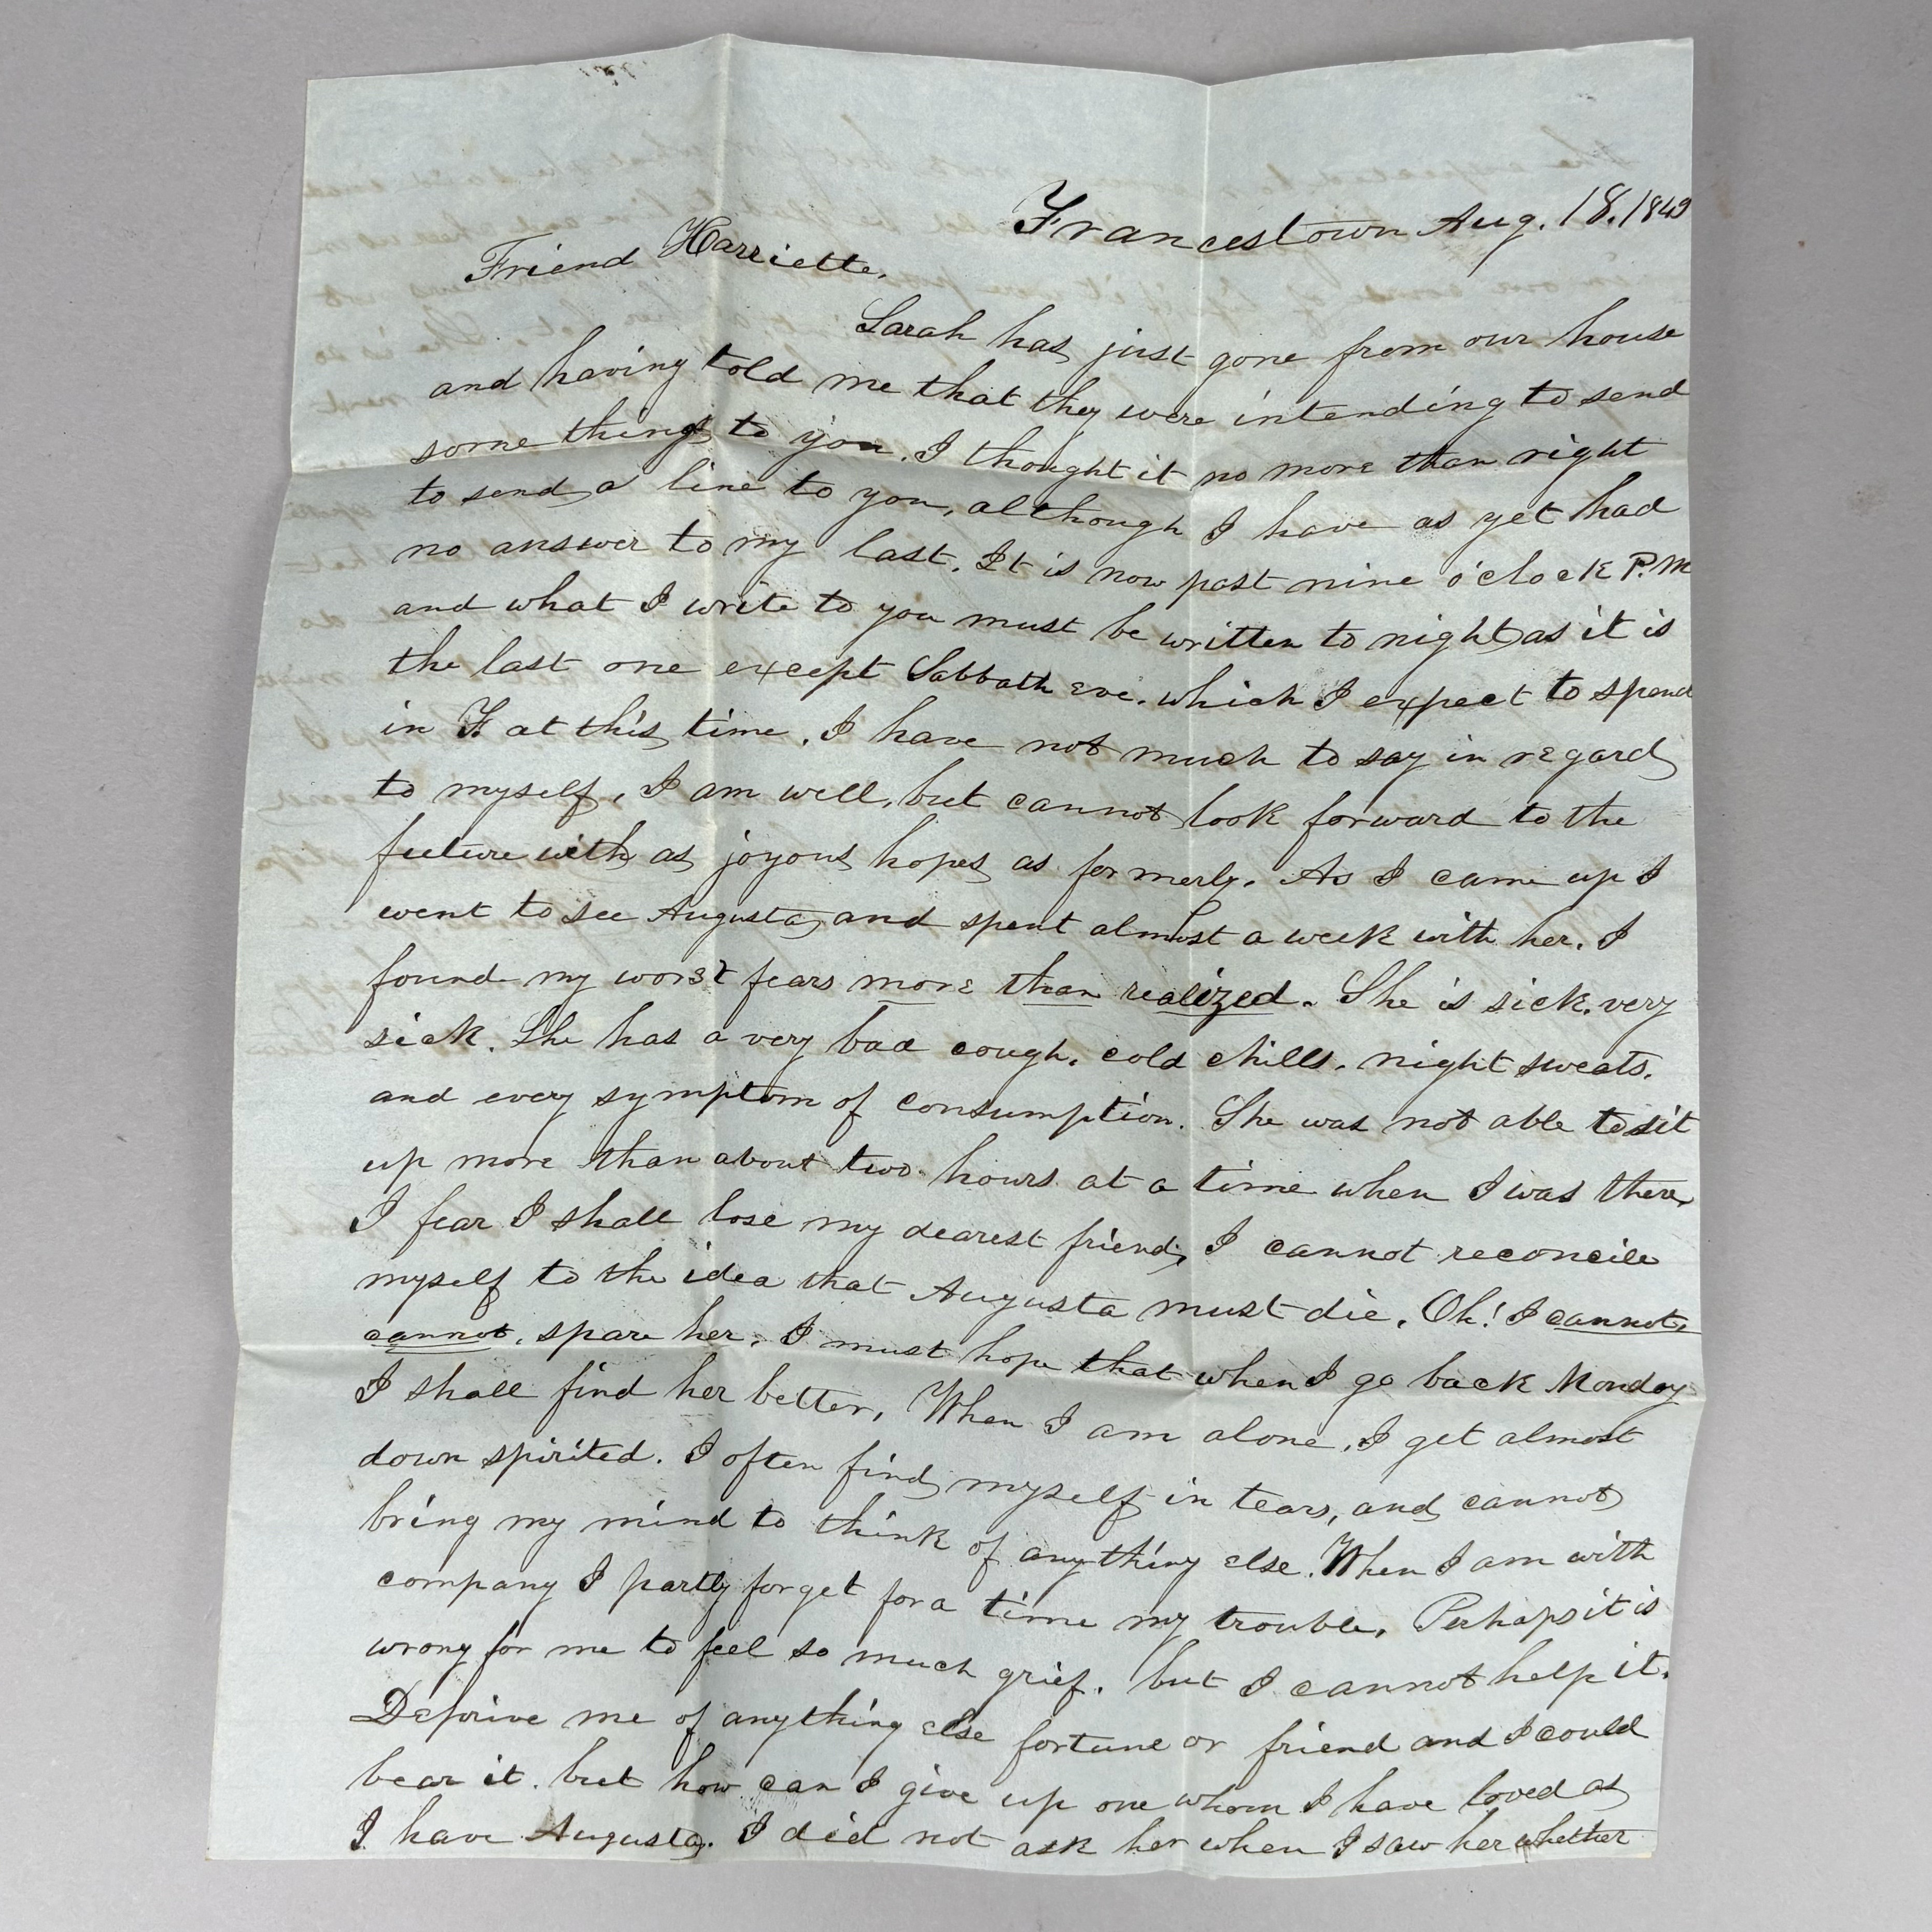 Francestown Aug. 18. 1849
Friend Harriette,
Sarah has just gone from our house
and having told me that they were intending to send
some things to you. I thought it no more than right
to send a line to you, although I have as yet had
no answer to my last. It is now past nine o'clock P.M
and what I write to you must be written to night as it is
the last one except Sabbath eve. which I expect to spend
in F. at this time. I have not much to say in regard
to myself, I am well, but cannot look forward to the
future with as joyous hopes as formerly. As I came up I
went to see Augusta, and spent almost a week with her. I
found my worst fears more than realized. She is sick, very
sick. She has a very bad cough, cold chills, night sweats.
and every symptom of consumption. She was not able to sit
up more than about two hours at a time when I was there,
I fear I shall lose my dearest friend, I cannot reconcile
myself to the idea that Augusta must die. Oh! I cannot,
cannot, spare her. I must hope that when I go back Monday
I shall find her better. When I am alone, I get almost
down spirited. I often find myself in tears, and cannot
bring my mind to think of anything else. When I am with
company I partly forget for a time my trouble. Perhaps it is
wrong for me to feel so much grief. but I cannot help it.
Deprive me of anything else fortune or friend and I could
bear it. but how can I give up one whom I have loved as
I have Augusta. I did not ask her when I saw her whether